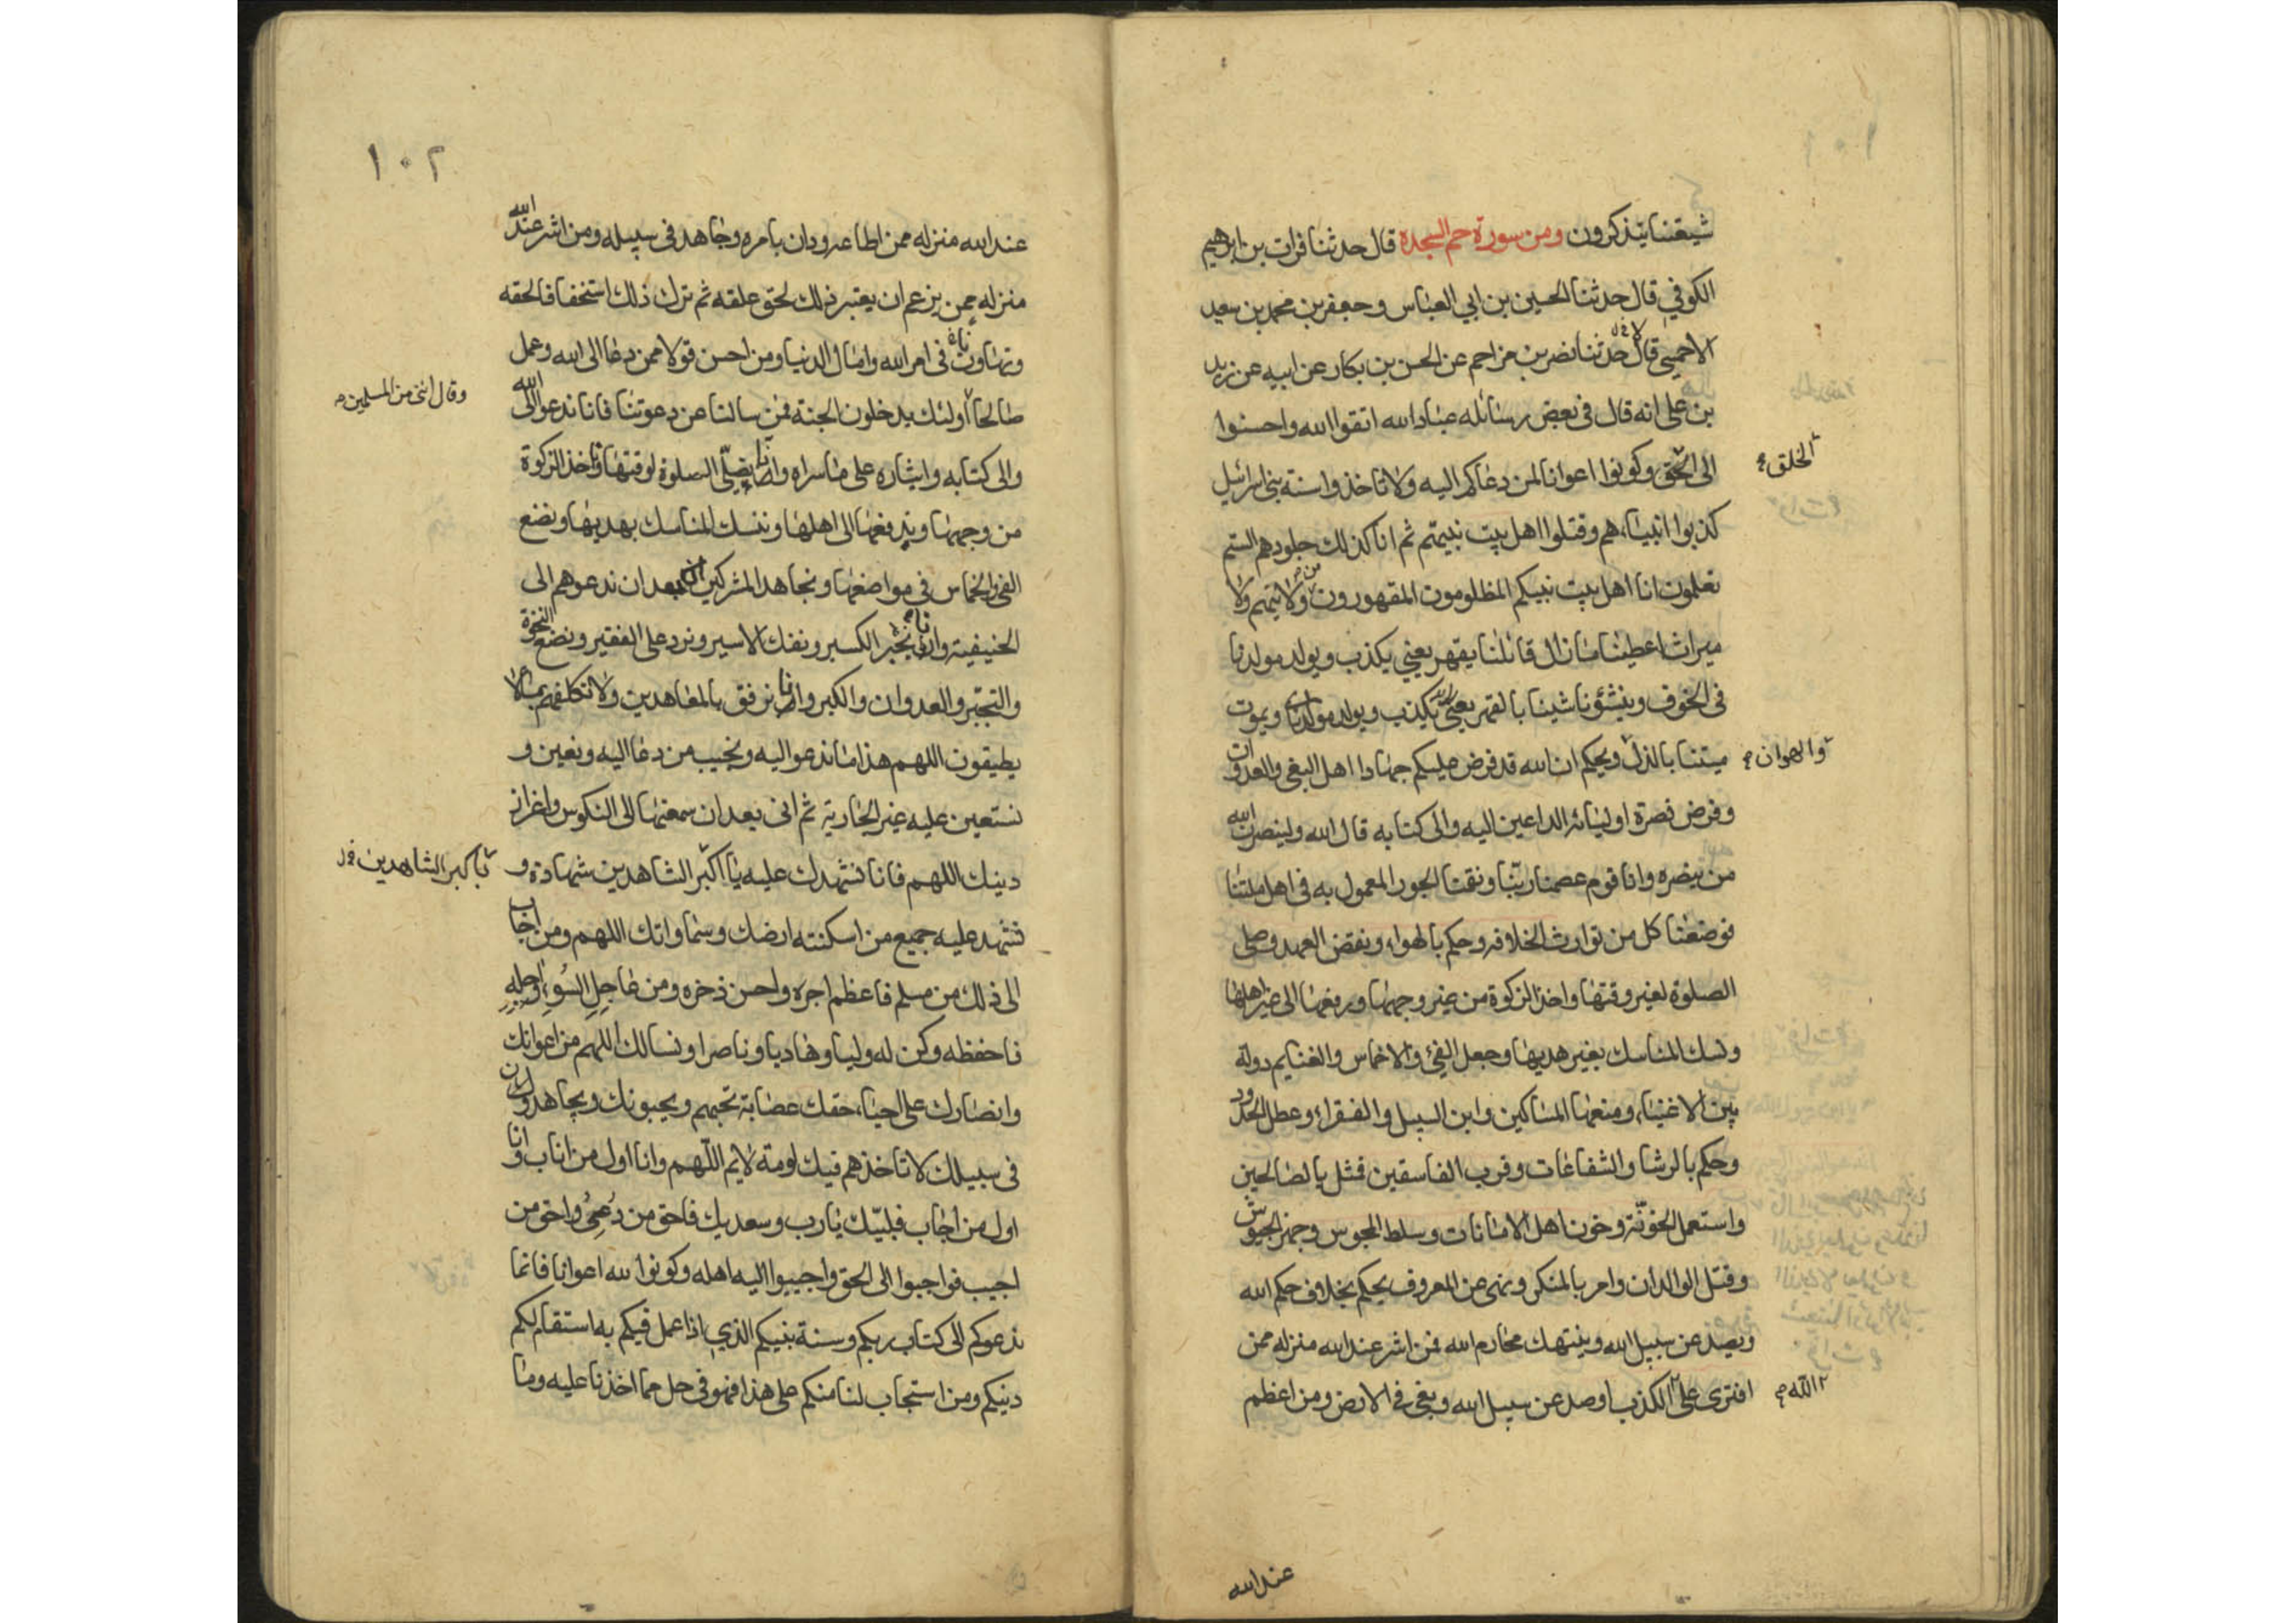 شيعتنا يتذكرون ومن سورة حم السجدة قال حدثنا فرات بن ابرهيم
الكوفي قال حدثنا الحسين بن ابي العباس وجعفر بن محمد بن سعيد
الاحمسي قالا حدثنا نصر بن مزاحم عن الحسن بن بكار عن ابيه عن زيد
بن علي انه قال في بعض رسائله عباد الله اتقوا الله واحسنوا
الى الحق وكونوا اعوانا لمن دعاكم اليه ولا تاخذوا سنة بني اسرائيل
الخلق
كذبوا انبياءهم وقتلوا اهل بيت نبيهم ثم انا كذلك
تعلمون انا اهل بيت نبيكم المظلومون المقهورون من ولايتهم ولا
ميراث اعطينا ما زال قائلنا يقهر يعني يكذب ويولد مولدنا
في الخوف وينشؤ ناشينا بالقهر يعني يكذب ويولد مولدنا ويموت
ميتنا بالذل ويحكم ان الله قد فرض عليكم جهادا اهل البغي والعدوان
والهوان
وفرض نصرة اوليائه الداعين اليه والى كتابه قال الله ولينصرن الله
من ينصره وانا قوم عصمنا ربنا ونقتنا الجور المعمول به في اهل ملتنا
فوضعنا كل من توارث الخلافه وحكم بالهواء ونقض العهد وصلى
الصلوة لغير وقتها واخذ الزكوة من غير وجهها ورفعها الى غير اهلها
ونسك المناسك بغير هديها وجعل الفئ والاخماس والغنايم دولة
بين الاغنياء ومنعها المساكين وابن السبيل والفقراء وعطل الحدود
وحكم بالرشا والشفاعات وقرب الفاسقين فمثل بالصالحين
واستعمل الخونة وخون اهل الامانات وسلط المجوس وجهز الجيوش
وقتل الوالدان وامر بالمنكر ونهى عن المعروف يحكم بخلاف حكم الله
ويصد عن سبيل الله وينتهك محارم الله فمن اشر عند الله منزله ممن
افترى على الكذب اوصد عن سبيل الله وبغى في الارض ومن اعظم
الله
عند الله
١٠٢
عند الله منزله ممن اطاعه ودان بامره وجاهد في سبيله ومن اشر عند الله
منزله ممن يزعم ان بغير ذلك لحق علقه ثم ترك ذلك استخفافا لحقه
وتهاونا في امر الله وامال الدنيا ومن احسن قولا ممن دعا الى الله وعمل
صالحا اولئك يدخلون الجنة فمن سالنا عن دعوتنا فانا ندعو الى الله
وقال انني من المسلمين
والى كتابه وايثاره على ما سواه وانا نصلى الصلوة لوقتها وناخذ الزكوة
من وجهها وندفعها الى اهلها وننسك المناسك بهديها ونضع
الفئ والخماس في مواضعها ونجاهد المشركين بعد ان ندعوهم الى
الحنيفية وانا نجبر الكسير ونفك الاسير ونرد على الفقير ونضع النخوة
والتجبر والعدوان والكبر وانا نرفق بالمعاهدين ولا نكلفهم بما لا
يطيقون اللهم هذا ما ندعو اليه ونجيب من دعا اليه ونعين و
نستعين عليه ثم انى بعد ان سمعتها الى النكوس
دينك اللهم فانا نشهدك عليه يا اكبر الشاهدين شهادة و
باكبر الشاهدين
نشهد عليه جميع من اسكنته ارضك وسماواتك اللهم ومن اجاب
الى ذلك من مسلم فاعظم اجره واحسن ذخره ومن عاجل السوء واجله
فاحفظه وكن له وليا وهاديا وناصرا ونسالك اللهم من اعوانك
وانصارك على احياء حقك عصابة تحبهم ويحبونك ويجاهدون
في سبيلك لا تاخذهم فيك لومة لايم اللهم وانا اول من اناب وانا
اول من اجاب فلبيك يا رب وسعديك فاحق من دعي واحق من
اجيب فواجبوا الى الحق واجيبوا اليه اهله وكونوا لله اعوانا فانما
ندعوكم الى كتاب ربكم وسنة نبيكم الذي اذا عمل فيكم به استقام لكم
دينكم ومن استجاب لنا منكم على هذا فهو في حل مما اخذنا عليه وما